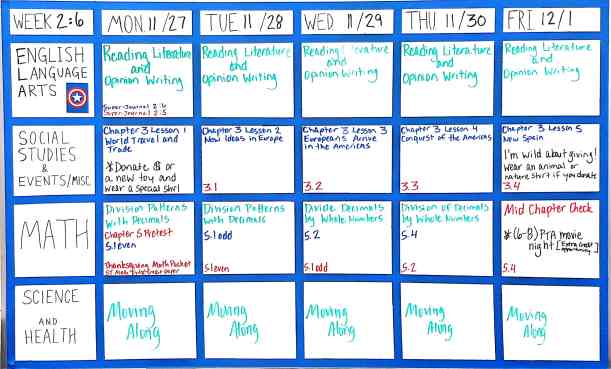 WEEK 2:6
MON 11/27
TUE 11/28
WED 11/29
THU 11/30
FRI 12/1
ENGLISH
LANGUAGE
ARTS
Reading Literature
and
Opinion Writing
Super Journal 2:6
Super Journal 2:5
Reading Literature
and
Opinion Writing
Reading Literature
and
Opinion Writing
Reading Literature
and
Opinion Writing
Reading Literature
and
Opinion Writing
SOCIAL
STUDIES
&
EVENTS/MISC
Chapter 3 Lesson 1
World Travel and
Trade
*Donate $ or
a new toy and
wear a special shirt
Chapter 3 Lesson 2
New Ideas in Europe
3.1
Chapter 3 Lesson 3
Europeans Arrive
in the Americas
3.2
Chapter 3 Lesson 4
Conquest of the Americas
3.3
Chapter 3 Lesson 5
New Spain
I'm wild about giving!
Wear an animal or
nature shirt if you donate
3.4
MATH
Division Patterns
with Decimals
Chapter 5 Pretest
5.1 even
Thanksgiving Math Packet
Division Patterns
with Decimals
5.1 odd
5.1 even
Divide Decimals
by Whole Numbers
5.2
5.1 odd
Division of Decimals
by Whole Numbers
5.4
5.2
Mid Chapter Check
*(6-8) PTA movie
night [Extra Credit
opportunity]
5.4
SCIENCE
AND
HEALTH
Moving
Along
Moving
Along
Moving
Along
Moving
Along
Moving
Along